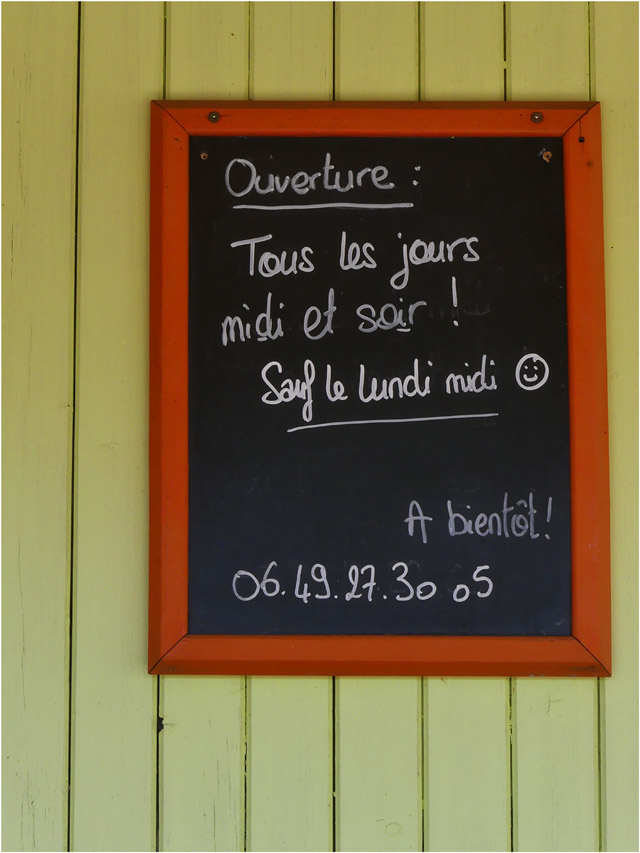 Ouverture :
Tous les jours
midi et soir !
Sauf le lundi midi
A bientôt!
06.49.27.30 05